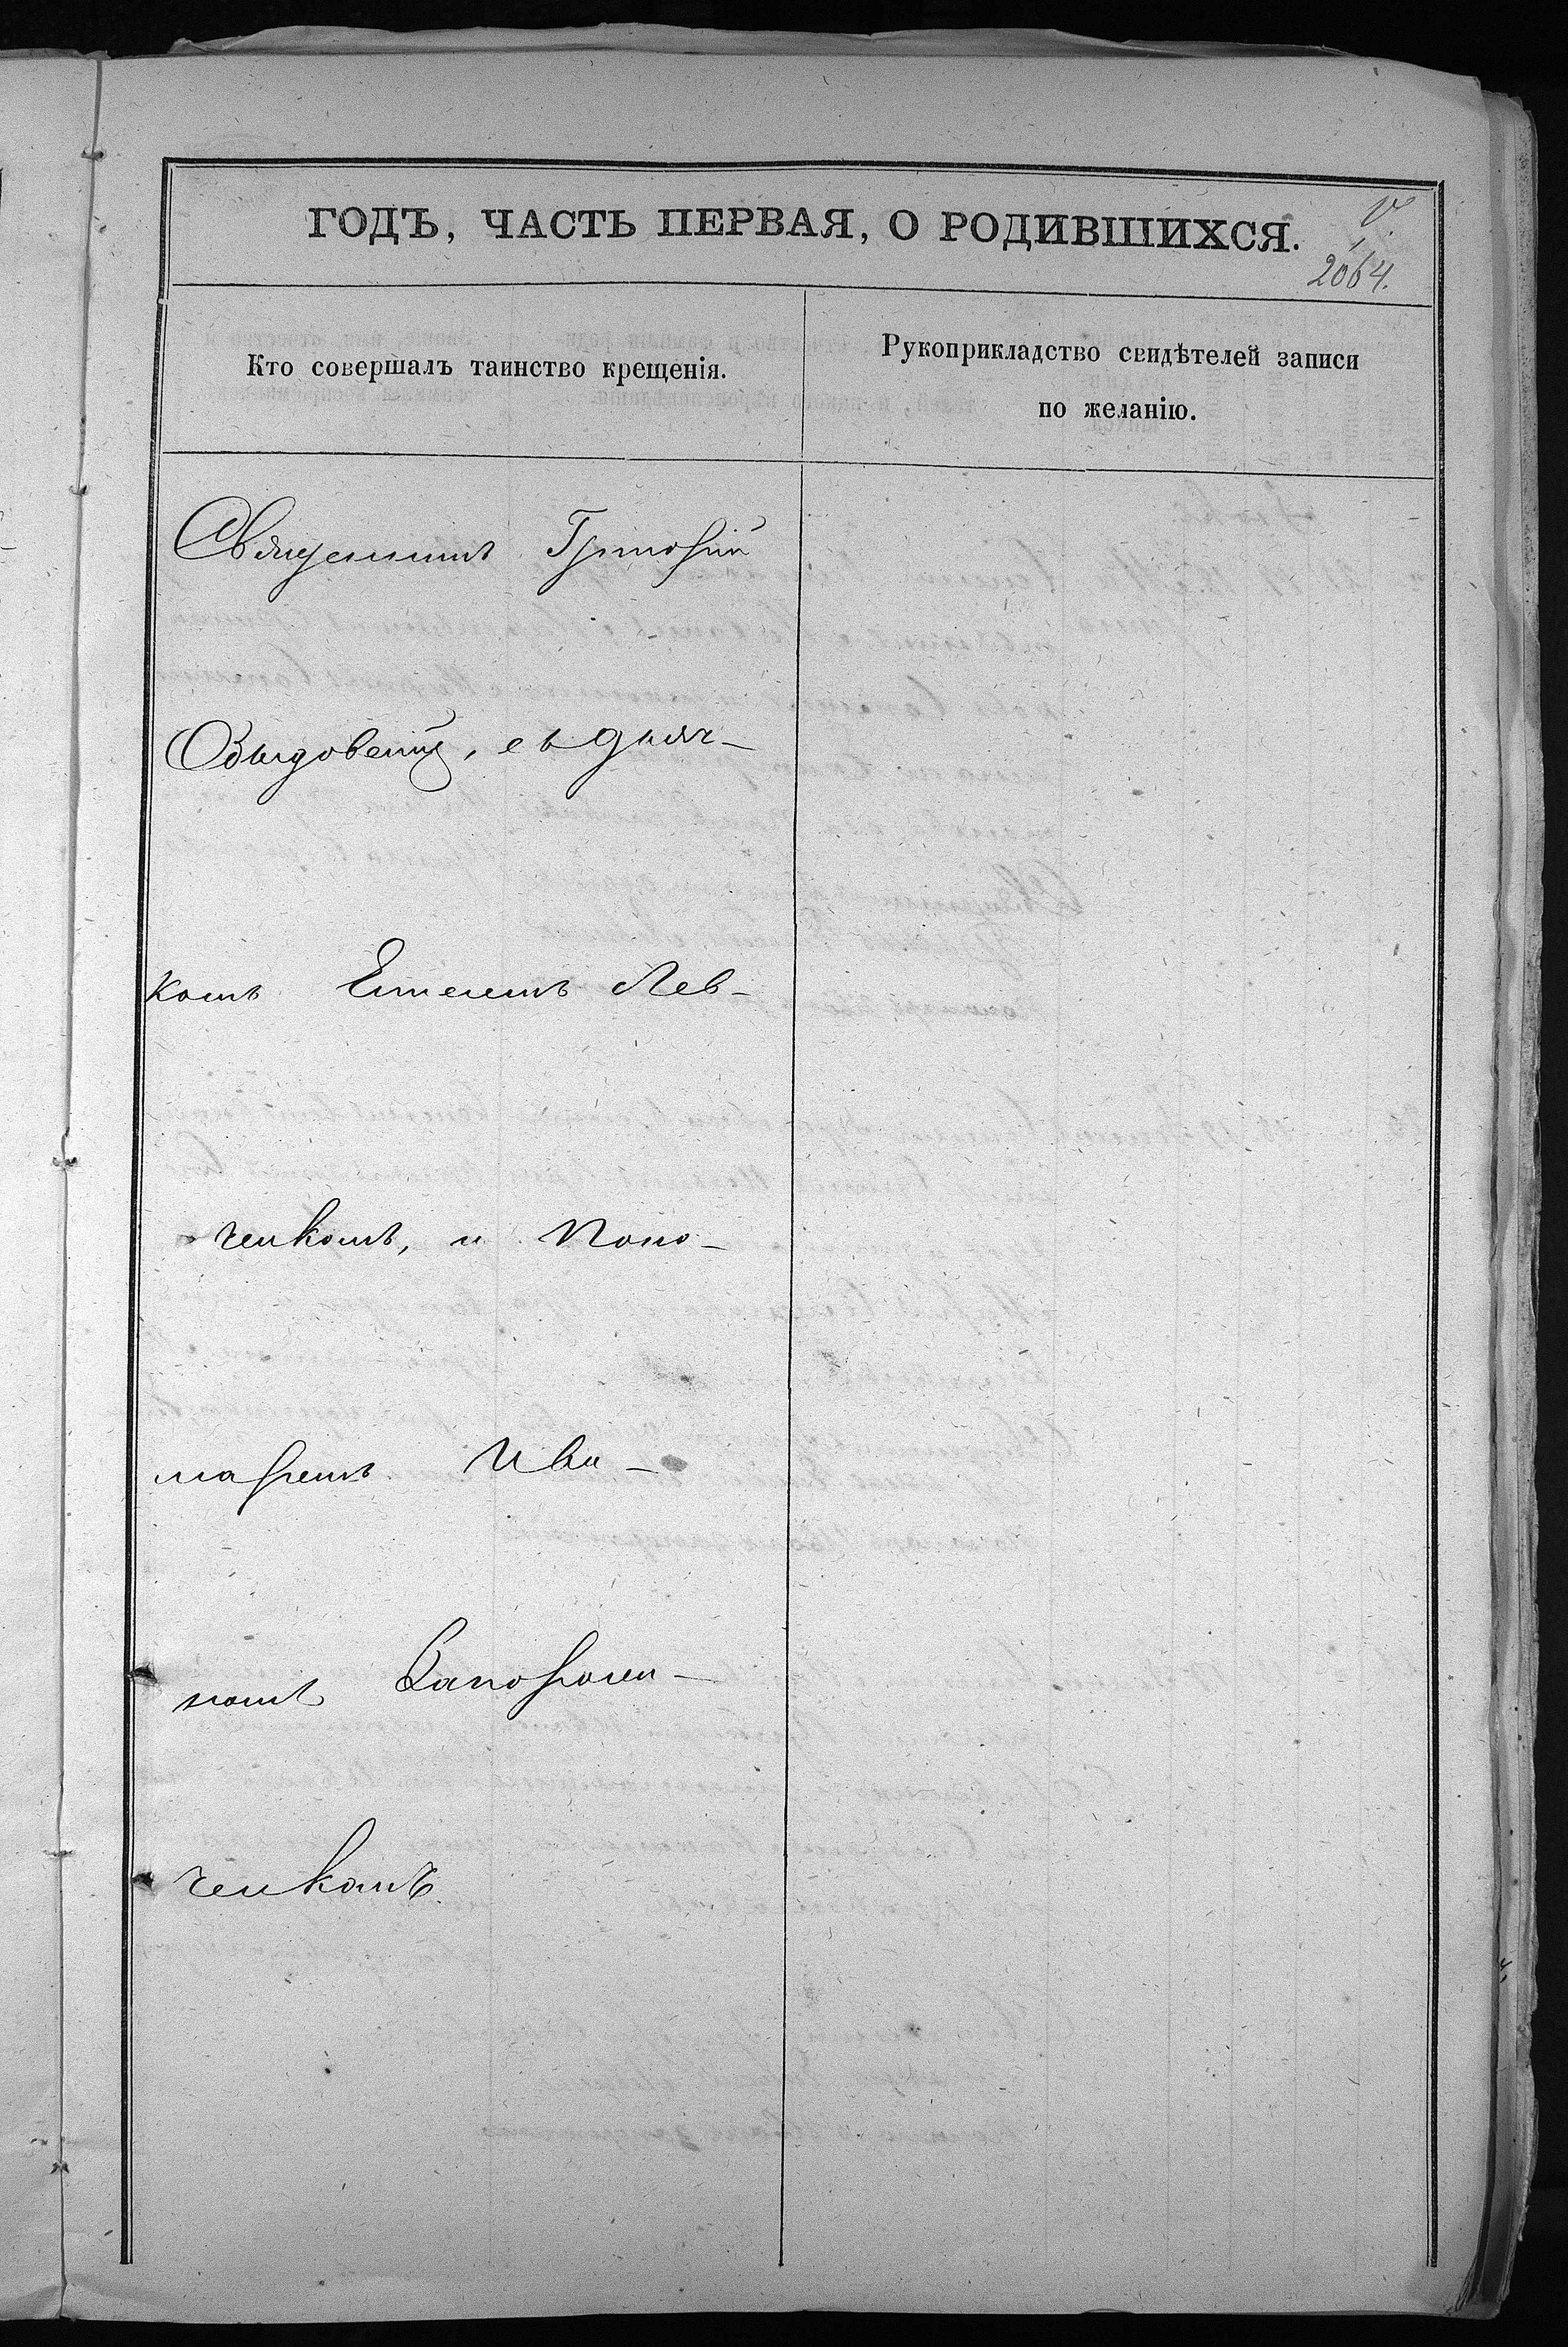 ГОДЪ, ЧАСТЬ ПЕРВАЯ, О РОДИВШИХСЯ.
2064.
Кто совершалъ таинство крещенія.
Рукоприкладство свидѣтелей записи
по желанію.
Священникъ Григорій
съ дьяч-
комъ Лев-
ченкомъ, и Поно-
маремъ Ива-
номъ Запорожен-
ченкомъ.